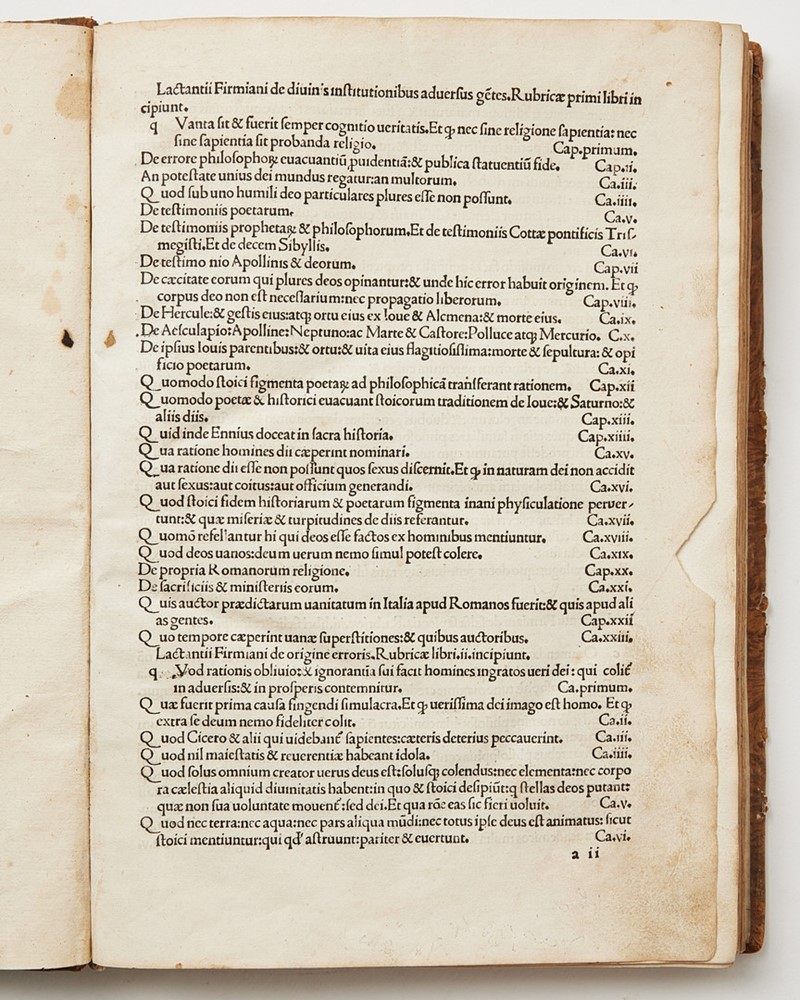 Lactantii Firmiani de diuinis institutionibus aduersus gẽtes.Rubricæ primi libri in
cipiunt.
q Vanta sit & fuerit semper cognitio ueritatis.Et ꝙ nec sine religione sapientia: nec
sine sapientia sit probanda religio. Cap.primum.
De errore philosophoꝝ euacuantiũ ꝓuidentiã:& publica statuentiũ fide. Cap.ii.
An potestate unius dei mundus regatur:an multorum. Ca.iii.
Quod sub uno humili deo particulares plures esse non possunt. Ca.iiii.
De testimoniis poetarum. Ca.v.
De testimoniis prophetaꝝ & philosophorum.Et de testimoniis Cottæ pontificis Tris-
megisti.Et de decem Sibyllis. Ca.vi.
De testimo nio Apollinis & deorum. Cap.vii
De cæcitate eorum qui plures deos opinantur:& unde hic error habuit originem. Et ꝙ
corpus deo non est necessarium:nec propagatio liberorum. Cap.viii.
De Hercule:& gestis eius:atqꝫ ortu eius ex Ioue & Alcmena:& morte eius. Ca.ix.
De Aesculapio:Apolline:Neptuno:ac Marte & Castore:Polluce atqꝫ Mercurio. C.x.
De ipsius Iouis parentibus:& ortu:& uita eius flagitiosissima:morte & sepultura: & opi
ficio poetarum. Ca.xi.
Quomodo stoici figmenta poetaꝝ ad philosophicã transferant rationem. Cap.xii
Quomodo poetæ & historici euacuant stoicorum traditionem de Ioue:& Saturno:&
aliis diis. Cap.xiii.
Quid inde Ennius doceat in sacra historia. Cap.xiiii.
Qua ratione homines dii cæperint nominari. Ca.xv.
Qua ratione dii esse non possunt quos sexus discernit.Et ꝙ in naturam dei non accidit
aut sexus:aut coitus:aut officium generandi. Ca.xvi.
Quod stoici fidem historiarum & poetarum figmenta inani physiculatione peruer-
tunt:& quæ miseriæ & turpitudines de diis referantur. Ca.xvii.
Quomõ refellantur hi qui deos esse factos ex hominibus mentiuntur. Ca.xviii.
Quod deos uanos:deum uerum nemo simul potest colere. Ca.xix.
De propria Romanorum religione. Cap.xx.
De sacrificiis & ministeriis eorum. Ca.xxi.
Quis auctor prædictarum uanitatum in Italia apud Romanos fuerit:& quis apud ali
as gentes. Cap.xxii
Quo tempore cæperint uanæ superstitiones:& quibus auctoribus. Ca.xxiii.
Lactantii Firmiani de origine erroris.Rubricæ libri.ii.incipiunt.
q Vod rationis obliuio:& ignorantia sui facit homines ingratos ueri dei : qui colit᷑
in aduersis:& in prosperis contemnitur. Ca.primum.
Quæ fuerit prima causa fingendi simulacra.Et ꝙ uerissima dei imago est homo. Et ꝙ
extra se deum nemo fideliter colit. Ca.ii.
Quod Cicero & alii qui uidebant᷑ sapientes:cæteris deterius peccauerint. Ca.iii.
Quod nil maiestatis & reuerentiæ habeant idola. Ca.iiii.
Quod solus omnium creator uerus deus est:solusqꝫ colendus:nec elementa:nec corpo
ra cælestia aliquid diuinitatis habent:in quo & stoici desipiũt:q stellas deos putant:
quæ non sua uoluntate mouent᷑:sed dei.Et qua rõe eas sic fieri uoluit. Ca.v.
Quod nec terra:nec aqua:nec pars aliqua mũdi:nec totus ipse deus est animatus: sicut
stoici mentiuntur:qui qd' astruunt:pariter & euertunt. Ca.vi.
a ii